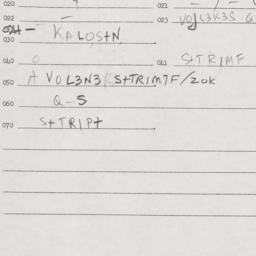 020 021
022 023 VOJL3K3S Q
024 KALOS+N
030
040 O 041 S+TRIMF
050 A VOL3N3 S+TRIM7F/20K
060 Q-S
070 S+TRIP+